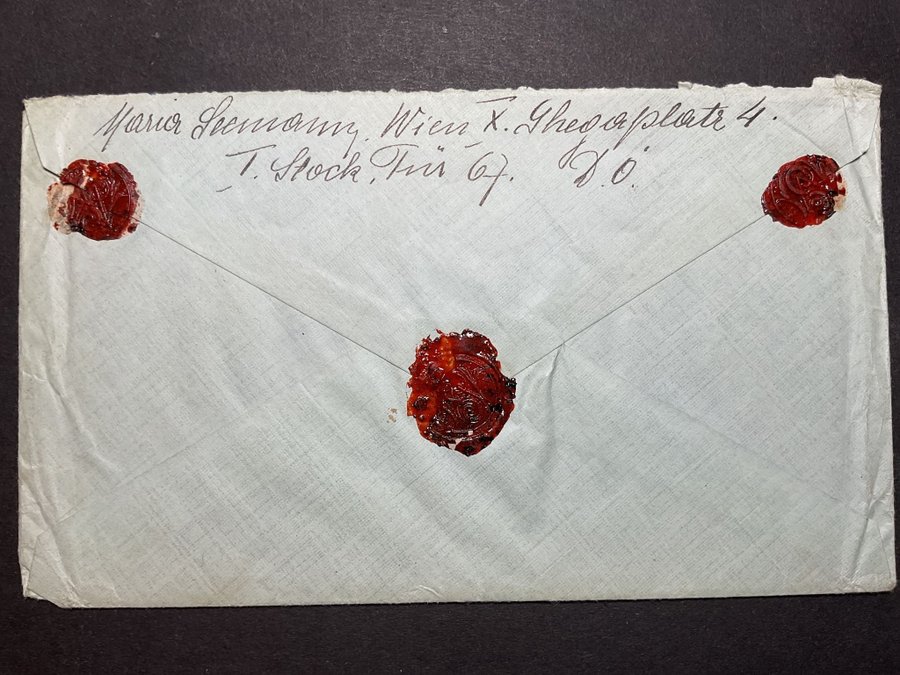 Maria Seemann, Wien X. Ghegaplatz 4.
I. Stock, Tür 67. D. Ö.